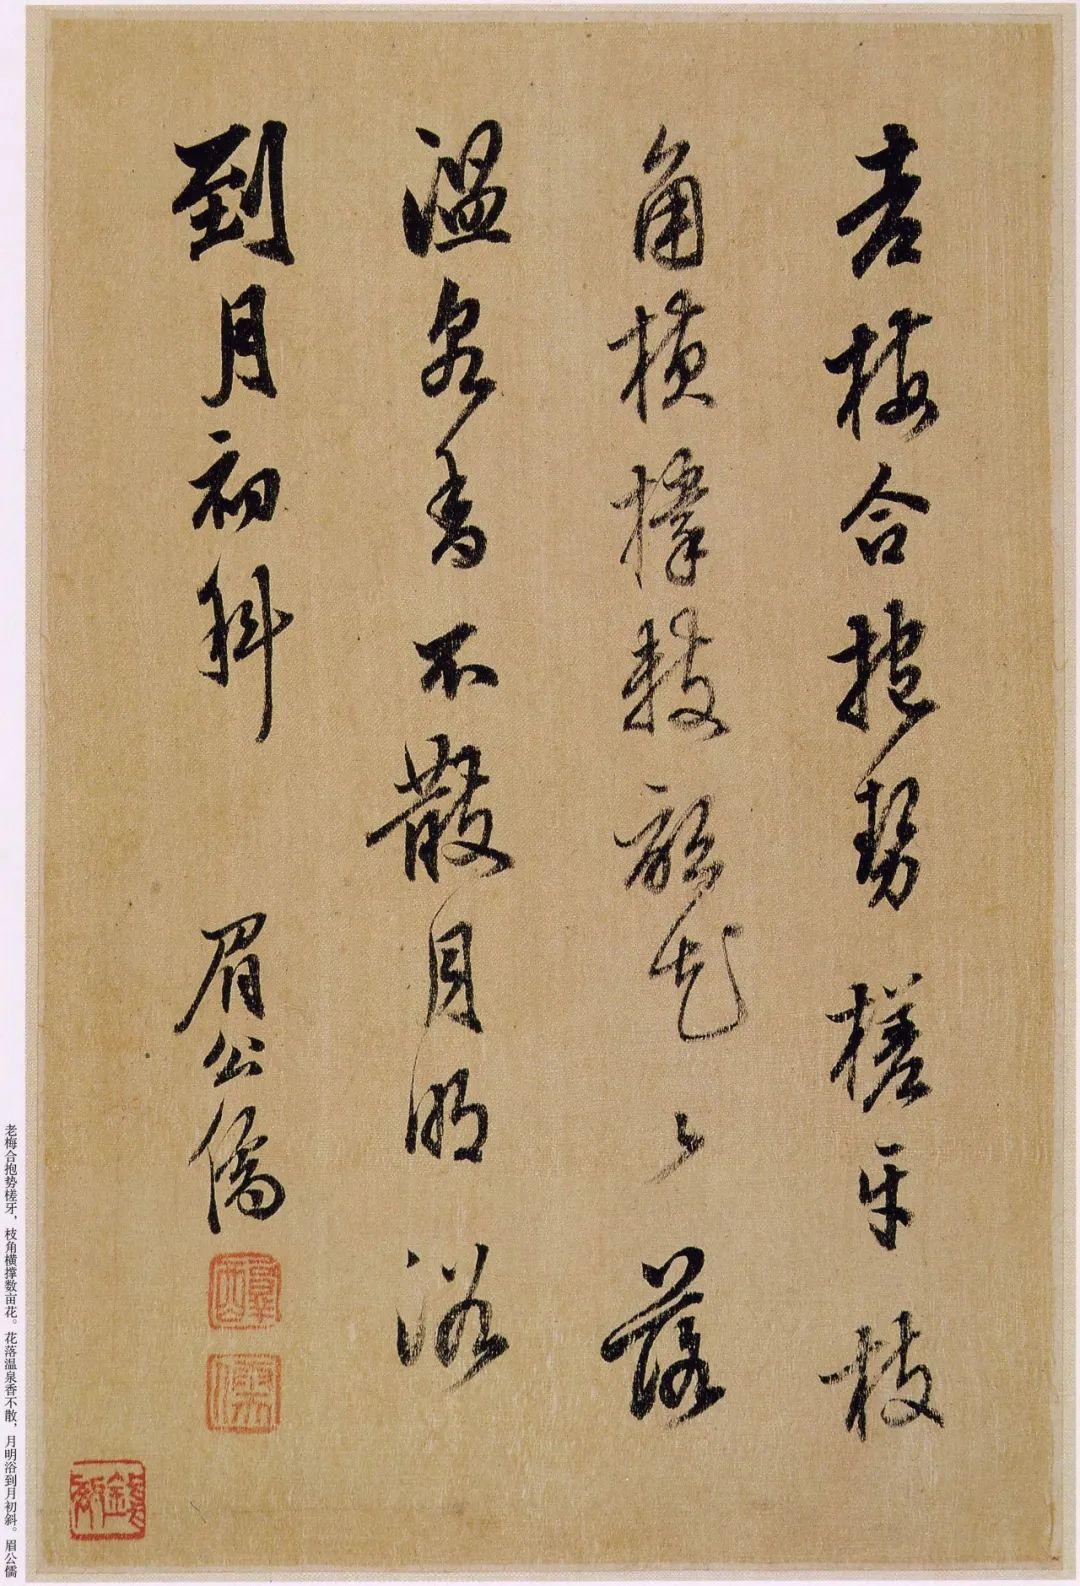 老梅合抱勢槎牙枝
角横撐數畝花〻落
温泉香不散月明浴
到月初斜 眉公儒
老梅合抱势槎牙，枝角横撑数亩花。花落温泉香不散，月明浴到月初斜。眉公儒